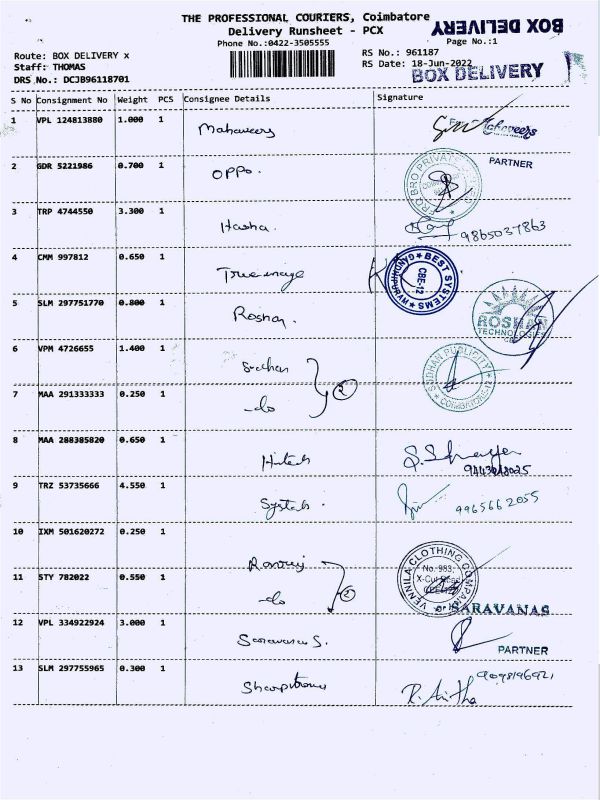 THE PROFESSIONAL COURIERS, Coimbatore
BOX DELIVERY
Delivery Runsheet - PCX
Phone No.:0422-3505555
Page No.:1
Route: BOX DELIVERY x
RS No.: 961187
Staff: THOMAS
RS Date: 18-Jun-2022
BOX DELIVERY
DRS No.: DCJB96118701
S No Consignment No Weight PCS Consignee Details Signature
1 VPL 124813880 1.000 1 Mahaveers
PARTNER
2 GDR 5221986 0.700 1 OPPO.
3 TRP 4744550 3.300 1 Hasha. 9865037863
4 CMM 997812 0.650 1 BEST SYSTEMS CBE-12
5 SLM 297751770 0.800 1 Roshan. ROSHAN TECHNOLOGIES
6 VPM 4726655 1.400 1 SUDHAN PUBLICITY COIMBATORE
7 MAA 291333333 0.250 1 -do 2
8 MAA 288385820 0.650 1 Hitech
9 TRZ 53735666 4.550 1 9965662055
10 IXM 501620272 0.250 1 VENNILA CLOTHING COMPANY No. 983,
11 STY 782022 0.550 1 -do 2
SARAVANAS
12 VPL 334922924 3.000 1 Saravanas.
PARTNER
13 SLM 297755965 0.300 1 R. Anitha